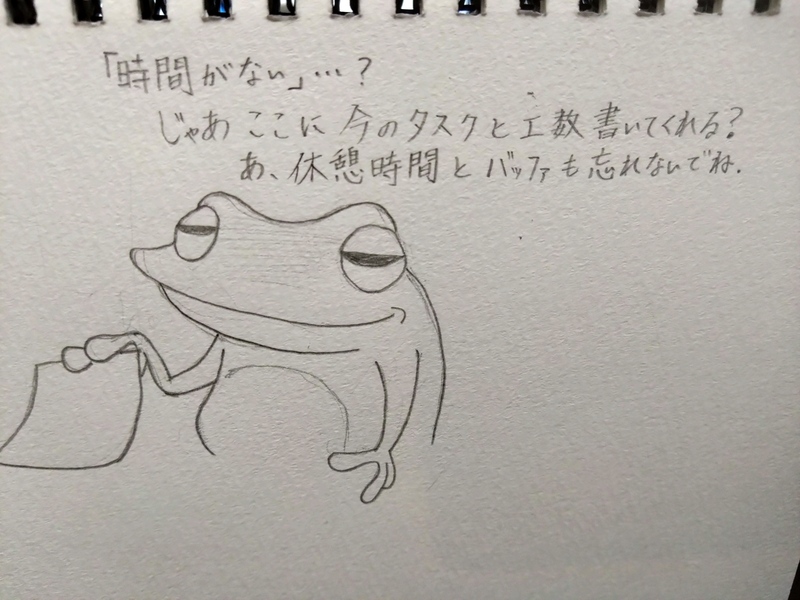 「時間がない」…?
じゃあ ここに 今のタスクと工数書いてくれる?
あ、休憩時間とバッファも忘れないでね.